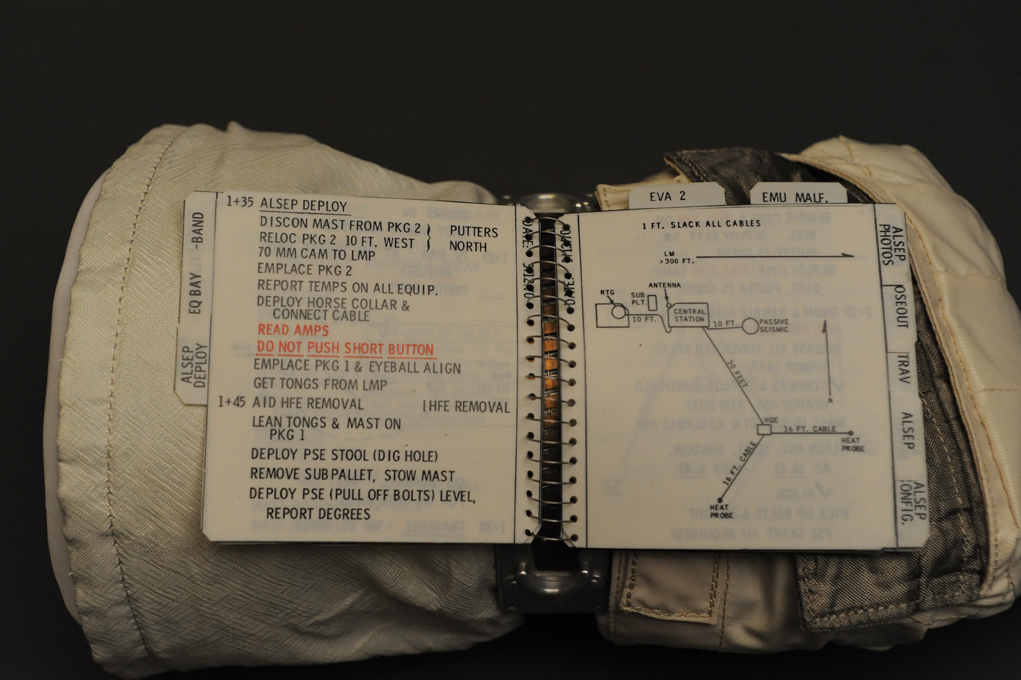 1+35 ALSEP DEPLOY
DISCON MAST FROM PKG 2 } PUTTERS
RELOC PKG 2 10 FT. WEST } NORTH
70 MM CAM TO LMP
EMPLACE PKG 2
REPORT TEMPS ON ALL EQUIP.
DEPLOY HORSE COLLAR &
CONNECT CABLE
READ AMPS
DO NOT PUSH SHORT BUTTON
EMPLACE PKG 1 & EYEBALL ALIGN
GET TONGS FROM LMP
1+45 AID HFE REMOVAL | HFE REMOVAL
LEAN TONGS & MAST ON
PKG 1
DEPLOY PSE STOOL (DIG HOLE)
REMOVE SUBPALLET, STOW MAST
DEPLOY PSE (PULL OFF BOLTS) LEVEL,
REPORT DEGREES
-BAND
EQ BAY
ALSEP
DEPLOY
DATE
DATE
EVA 2
EMU MALF.
1 FT. SLACK ALL CABLES
LM
>300 FT.
RTG
SUB
PLT
ANTENNA
CENTRAL
STATION
10 FT.
10 FT.
PASSIVE
SEISMIC
30 FEET
HGE
16 FT. CABLE
HEAT
PROBE
16 FT. CABLE
HEAT
PROBE
ALSEP
PHOTOS
OSEOUT
TRAV
ALSEP
ALSEP
ONFIG.